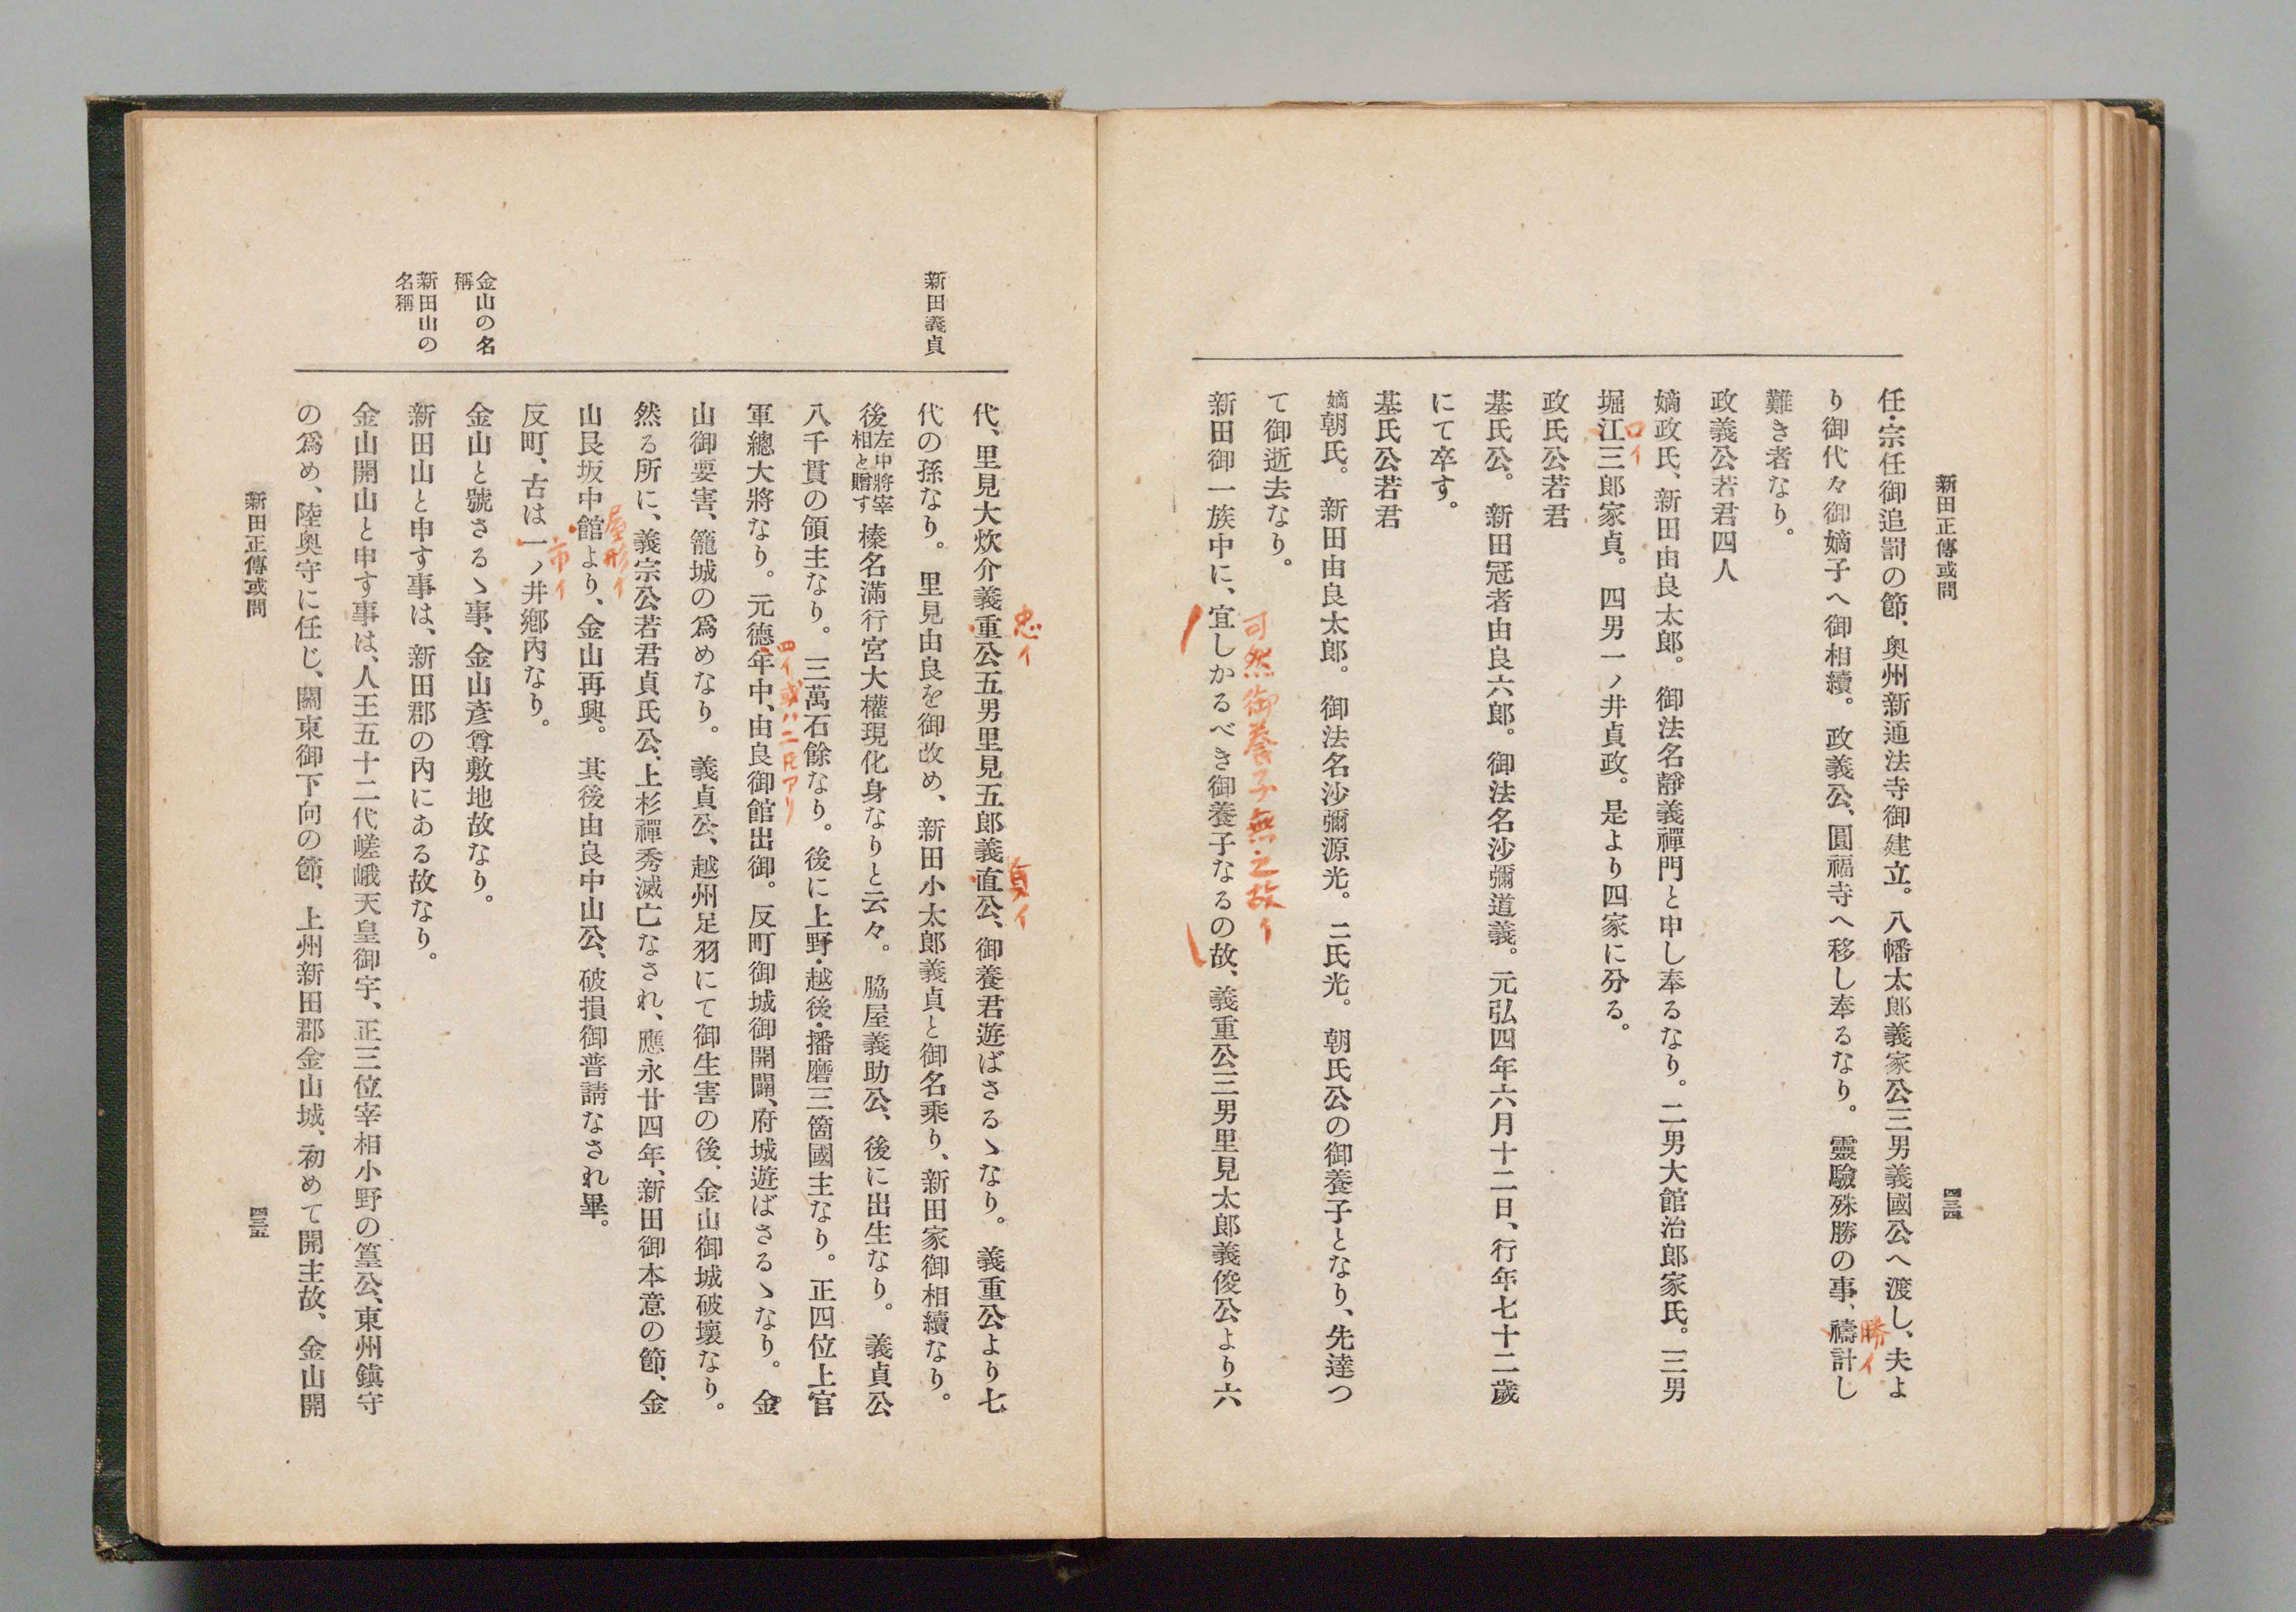 新田正傳或問
四三四
任・宗任御追罰の節、奥州新通法寺御建立。八幡太郎義家公三男義國公へ渡し、夫よ
り御代々御嫡子へ御相續。政義公、圓福寺へ移し奉るなり。靈驗殊勝の事、禱計し
勝イ
難き者なり。
政義公若君四人
嫡政氏、新田由良太郎。御法名靜義禪門と申し奉るなり。二男大館治郎家氏。三男
堀江三郎家貞。四男一ノ井貞政。是より四家に分る。
口イ
政氏公若君
基氏公。新田冠者由良六郎。御法名沙彌道義。元弘四年六月十二日、行年七十二歲
にて卒す。
基氏公若君
嫡朝氏。新田由良太郎。御法名沙彌源光。二氏光。朝氏公の御養子となり、先達つ
て御逝去なり。
新田御一族中に、宜しかるべき御養子なるの故、義重公三男里見太郎義俊公より六
可然御養子無之故イ
新田義貞
金山の名
稱
新田山の
名稱
代、里見大炊介義重公五男里見五郎義直公、御養君遊ばさるゝなり。義重公より七
忠イ
貞イ
代の孫なり。里見由良を御改め、新田小太郎義貞と御名乘り、新田家御相續なり。
後左中將宰相と贈す榛名滿行宮大權現化身なりと云々。脇屋義助公、後に出生なり。義貞公
八千貫の領主なり。三萬石餘なり。後に上野・越後・播磨三箇國主なり。正四位上官
軍總大將なり。元德年中、由良御館出御。反町御城御開闢、府城遊ばさるゝなり。金
四イ或ハ二氏アリ
山御要害、籠城の爲めなり。義貞公、越州足羽にて御生害の後、金山御城破壞なり。
然る所に、義宗公若君貞氏公、上杉禪秀滅亡なされ、應永廿四年、新田御本意の節、金
山艮坂中館より、金山再興。其後由良中山公、破損御普請なされ畢。
屋形イ
反町、古は一ノ井鄕内なり。
市イ
金山と號さるゝ事、金山彥尊敷地故なり。
新田山と申す事は、新田郡の内にある故なり。
金山開山と申す事は、人王五十二代嵯峨天皇御宇、正三位宰相小野の篁公、東州鎭守
の爲め、陸奥守に任じ、關東御下向の節、上州新田郡金山城、初めて開主故、金山開
新田正傳或問
四三五